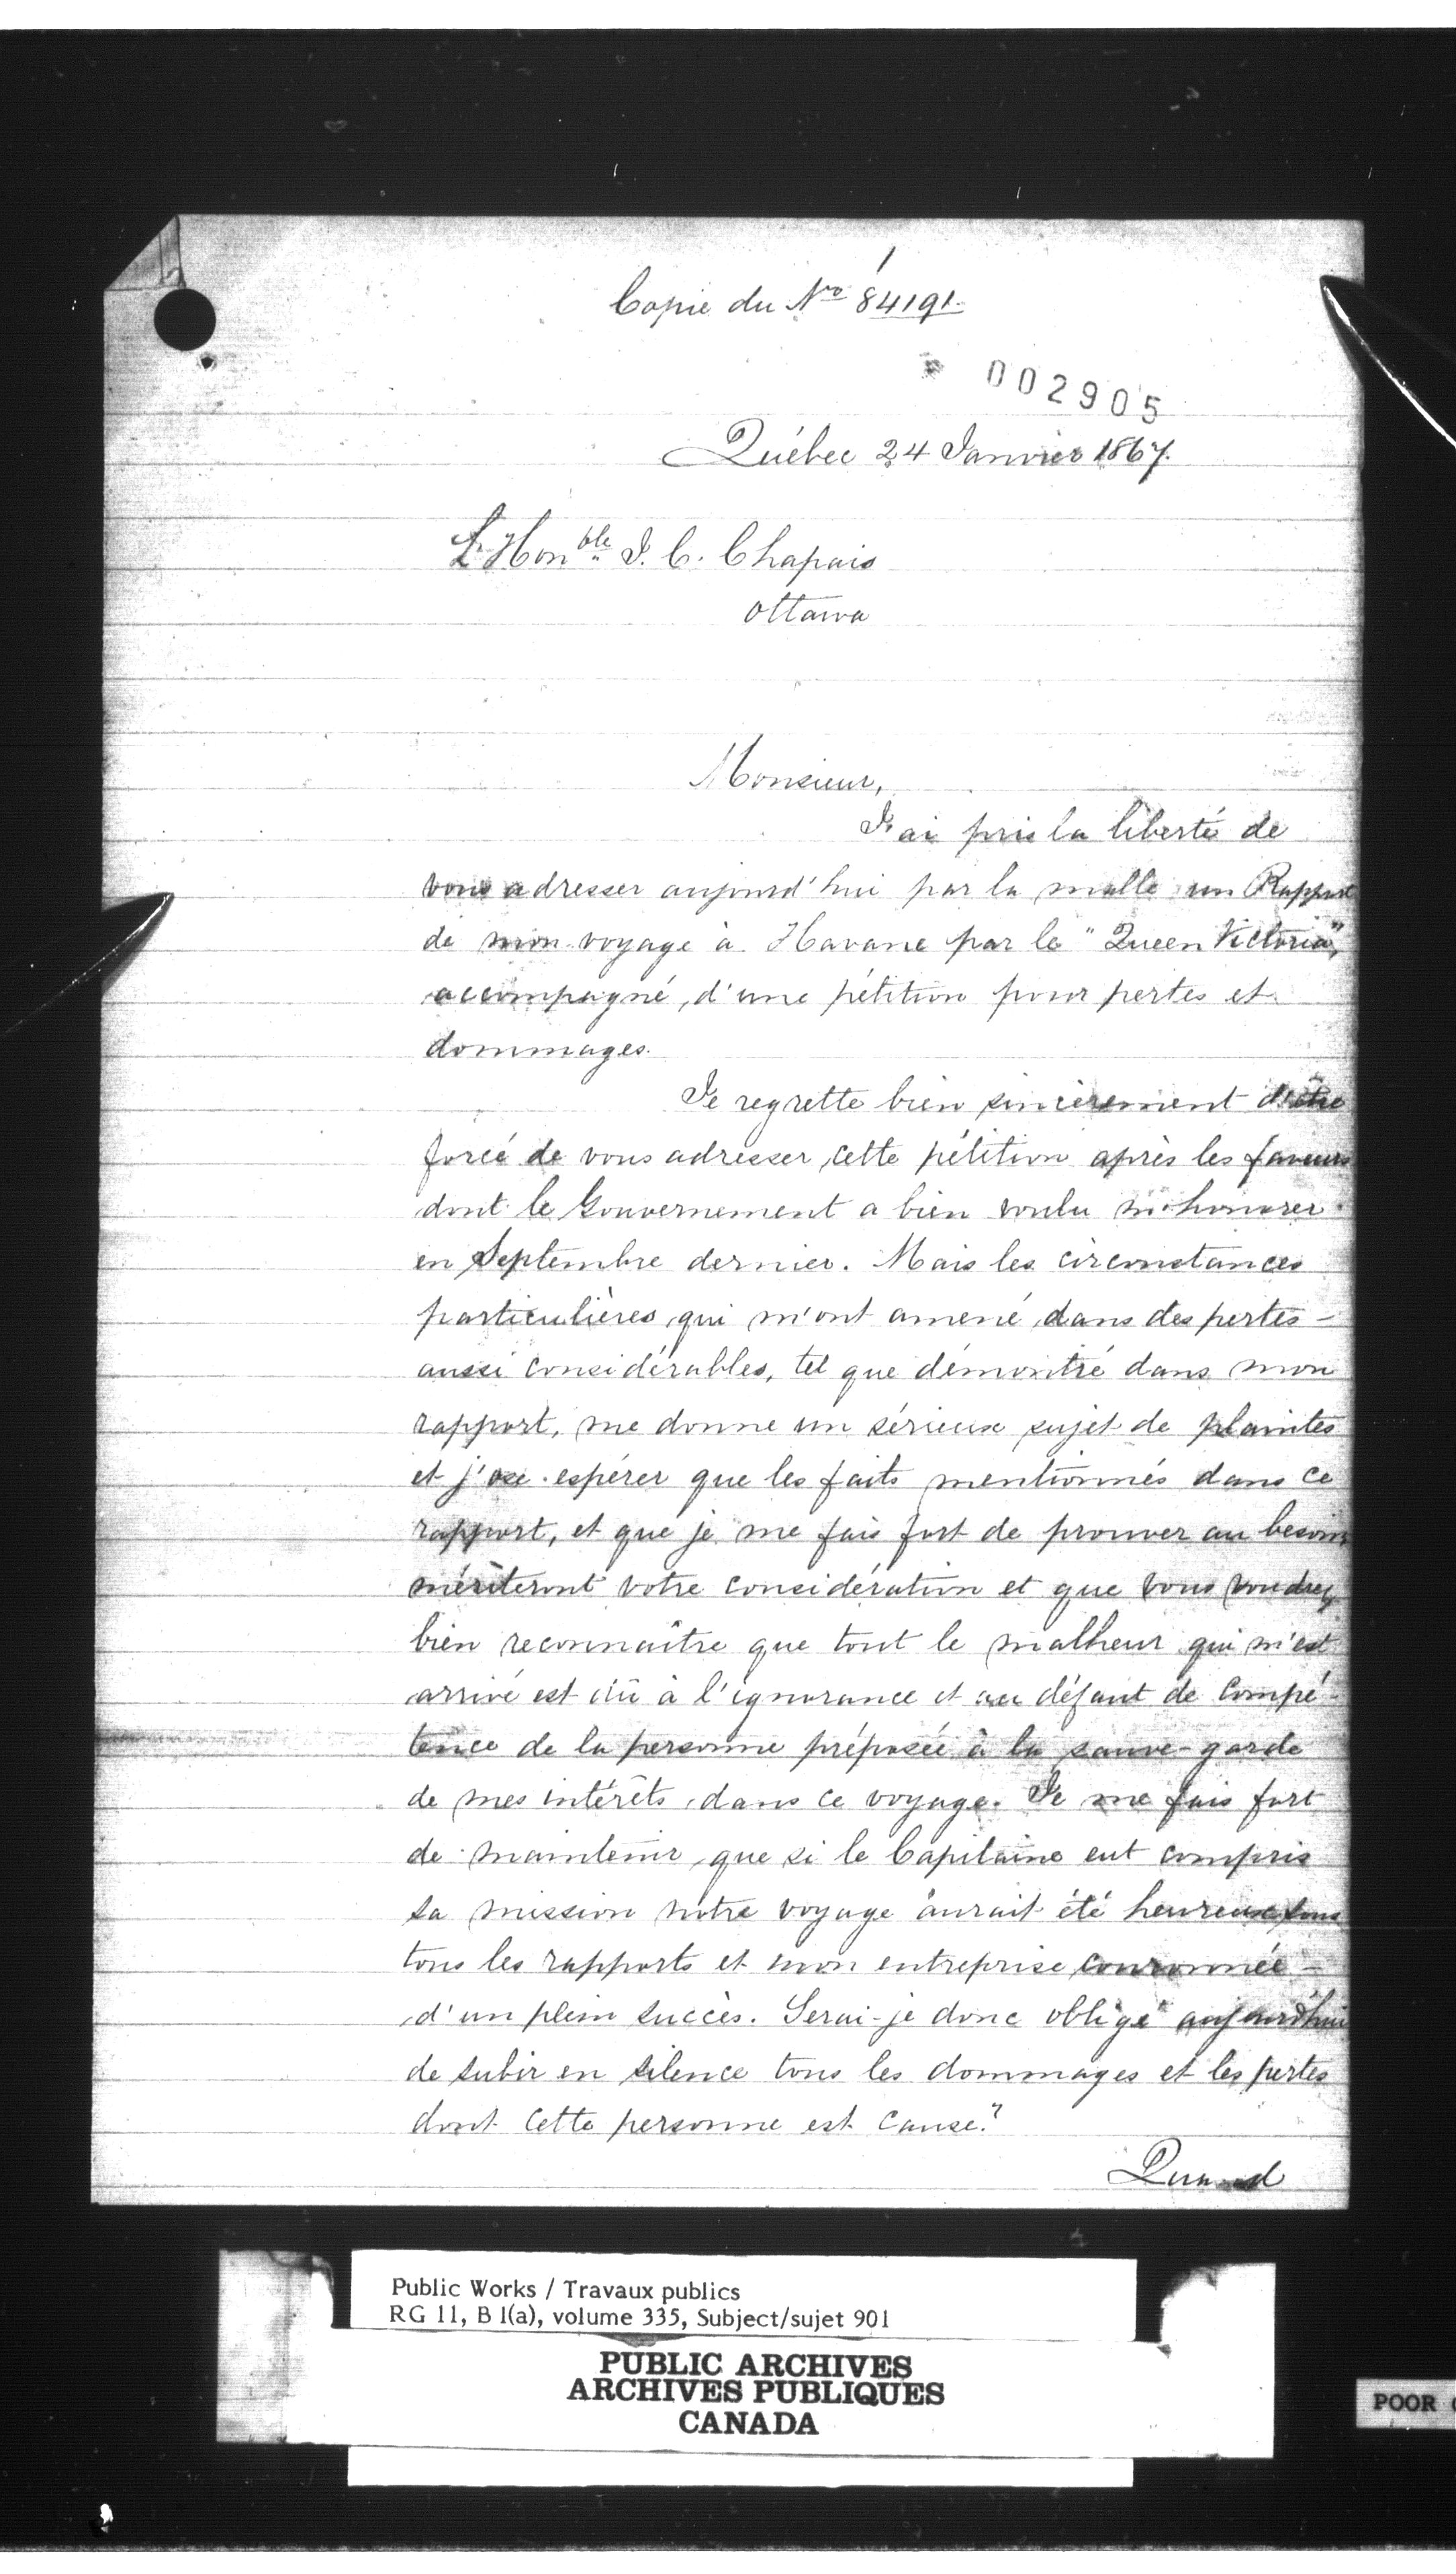 1
Copie du Nro 84191.
002905
Québec 24 Janvier 1867.
L'Honble J. C. Chapais
Ottawa
Monsieur,
J'ai pris la liberté de
vous adresser aujourd'hui par la malle un Rapport
de mon voyage à Havane par le "Queen Victoria",
accompagné d'une pétition pour pertes et
dommages.
Je regrette bien sincèrement d'être
forcé de vous adresser cette pétition après les faveurs
dont le Gouvernement a bien voulu m'honorer
en Septembre dernier. Mais les circonstances
particulières qui m'ont amené dans des pertes
aussi considérables, tel que démontré dans mon
rapport, me donne un sérieux sujet de plaintes
et j'ose espérer que les faits mentionnés dans ce
rapport, et que je me fais fort de prouver au besoin,
mériteront votre considération et que vous voudrez
bien reconnaître que tout le malheur qui m'est
arrivé est dû à l'ignorance et au défaut de compé-
tence de la personne préposée à la sauve-garde
de mes intérêts dans ce voyage. Je me fais fort
de maintenir que si le Capitaine eut compris
sa mission notre voyage aurait été heureux sous
tous les rapports et mon entreprise couronnée
d'un plein succès. Serai-je donc obligé aujourd'hui
de subir en silence tous les dommages et les pertes
dont cette personne est cause?
Quand
Public Works / Travaux publics
RG 11, B 1(a), volume 335, Subject/sujet 901
PUBLIC ARCHIVES
ARCHIVES PUBLIQUES
CANADA
POOR